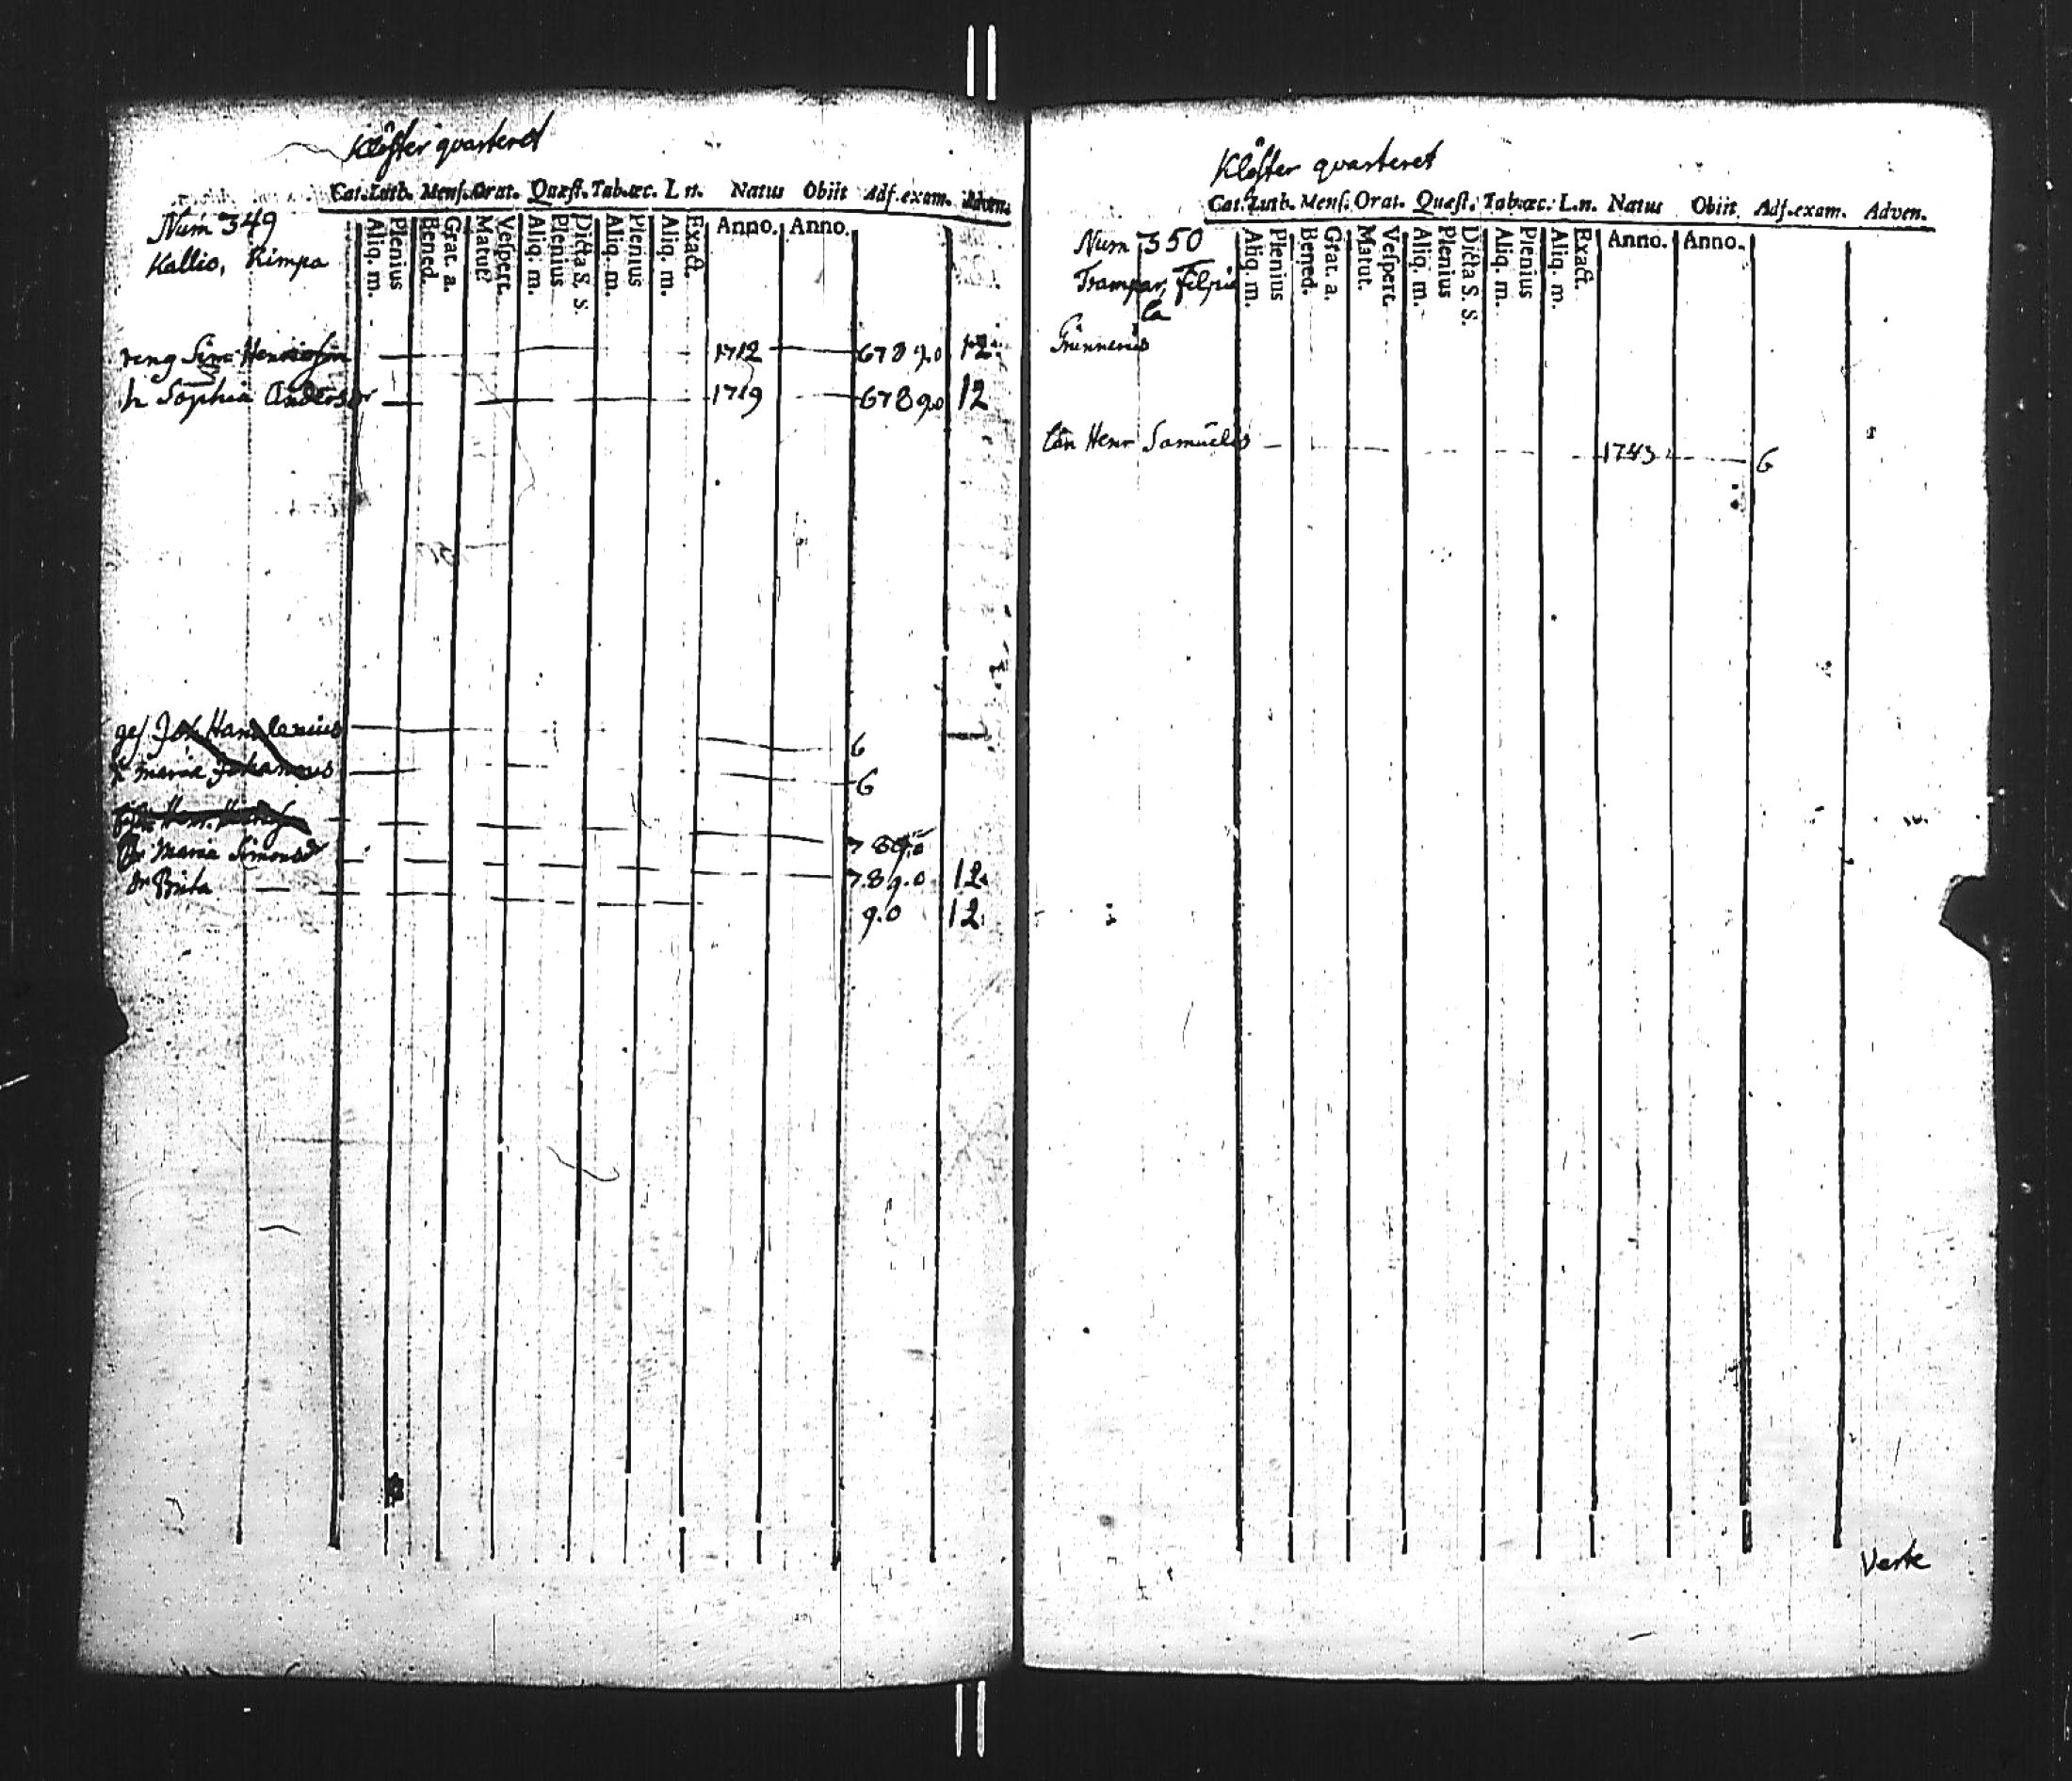 Klöster qvarteret
Cat. Luth. Mens. Orat. Quæst. Tab. œc. L. n. Natus Obiit Adf. exam. Adven.
Num 349
Aliq. m. Plenius Bened. Grat. a. Matut. Vespert. Aliq. m. Plenius Dicta S. S. Aliq. m. Plenius Aliq. m. Exact. Anno. Anno.
Kallio, Rimpa
Sim Henricsson 1712 6 7 8 9.0 12.
h Sophia Anders dr 1719 6 7 8 9.0 12
6
h Maria Johannis 6
7 8 9.0
Maria Simonsdr 7.8 9.0 12.
Dr Brita 9.0 12.
Klöster qvarteret
Cat. Luth. Mens. Orat. Quæst. Tab. œc. L. n. Natus Obiit Adf. exam. Adven.
Num 350
Aliq. m. Plenius Bened. Grat. a. Matut. Vespert. Aliq. m. Plenius Dicta S. S. Aliq. m. Plenius Aliq. m. Exact. Anno. Anno.
Trampar, Filpu
la
Henr Samuelis 1743 6
Verte